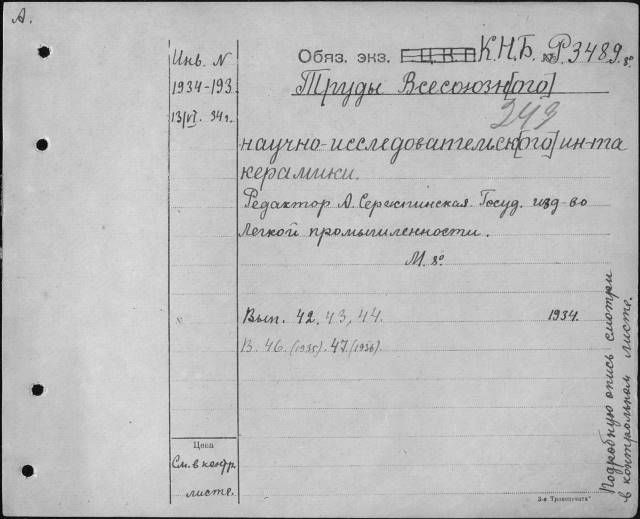 А.
Инв. N
1934-193
13/VI. 34г.
Обяз. экз. К.Н.Б. № Р.3489 8º
Труды Всесоюзн[ого]
243
научно-исследовательск[ого] ин-та
керамики.
Редактор А. Серкспинская. Госуд. изд-во
Легкой промышленности.
М. 8º
Вып. 42, 43, 44. 1934.
В. 46. (1935). 47. (1936)
Цена
См. в контр.
листе.
Подробную опись смотри
в контрольном листе.